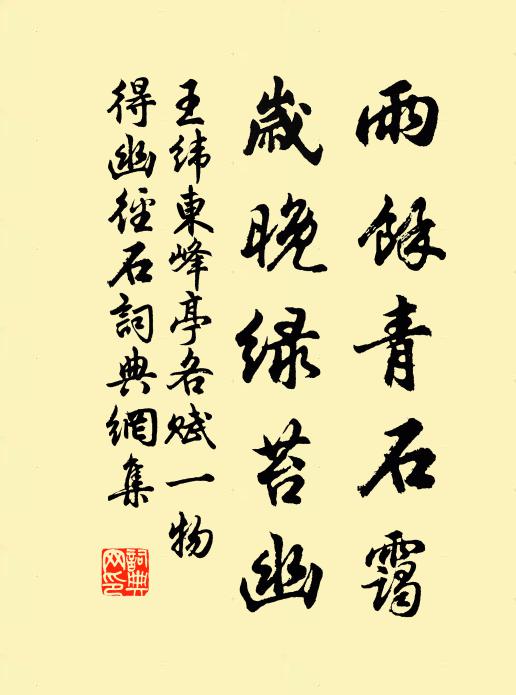 雨餘青石靄
歲晚绿苔幽
王緯東峰亭各賦一物
得幽徑石詞典網集
詞典网印